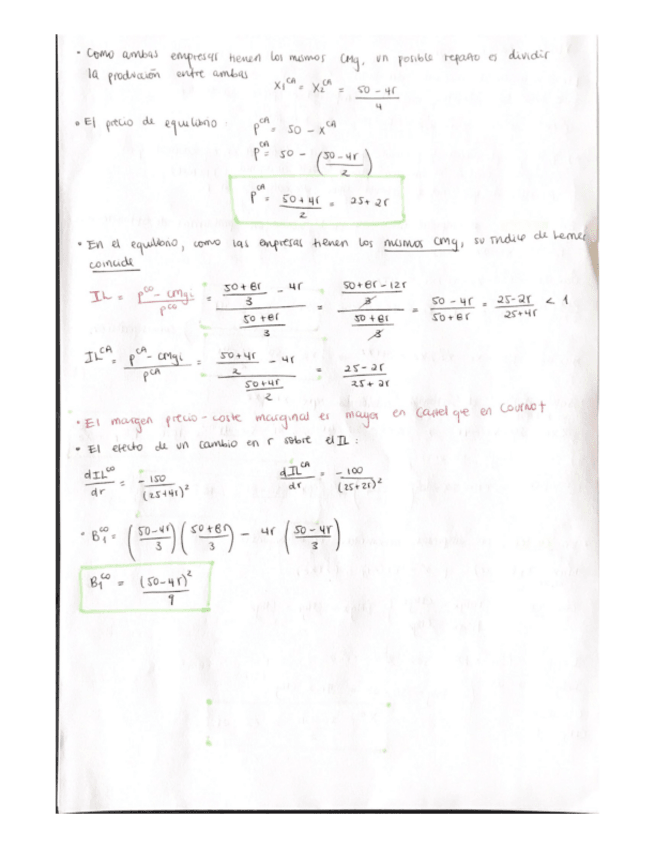 · Como ambas empresas tienen los mismos CMg, un posible reparto es dividir
la producción entre ambas
X₁^CA = X₂^CA = (50 - 4r)/4
• El precio de equilibrio
P^CA = 50 - X^CA
P^CA = 50 - ((50 - 4r)/2)
P^CA = (50 + 4r)/2 = 25 + 2r
• En el equilibrio, como las empresas tienen los mismos CMg, su índice de Lerner
coincide
IL = (P^CO - CMgi)/P^CO = ((50 + 8r)/3 - 4r)/((50 + 8r)/3) = ((50 + 8r - 12r)/3)/((50 + 8r)/3) = (50 - 4r)/(50 + 8r) = (25 - 2r)/(25 + 4r) < 1
IL^CA = (P^CA - CMgi)/P^CA = ((50 + 4r)/2 - 4r)/((50 + 4r)/2) = (25 - 2r)/(25 + 2r)
• El margen precio - coste marginal es mayor en Cartel que en Cournot
• El efecto de un cambio en r sobre el IL :
dIL^CO/dr = - 150/(25+4r)² dIL^CA/dr = - 100/(25+2r)²
• B₁^CO = ((50-4r)/3) ((50+8r)/3) - 4r ((50-4r)/3)
B₁^CO = (50-4r)²/9